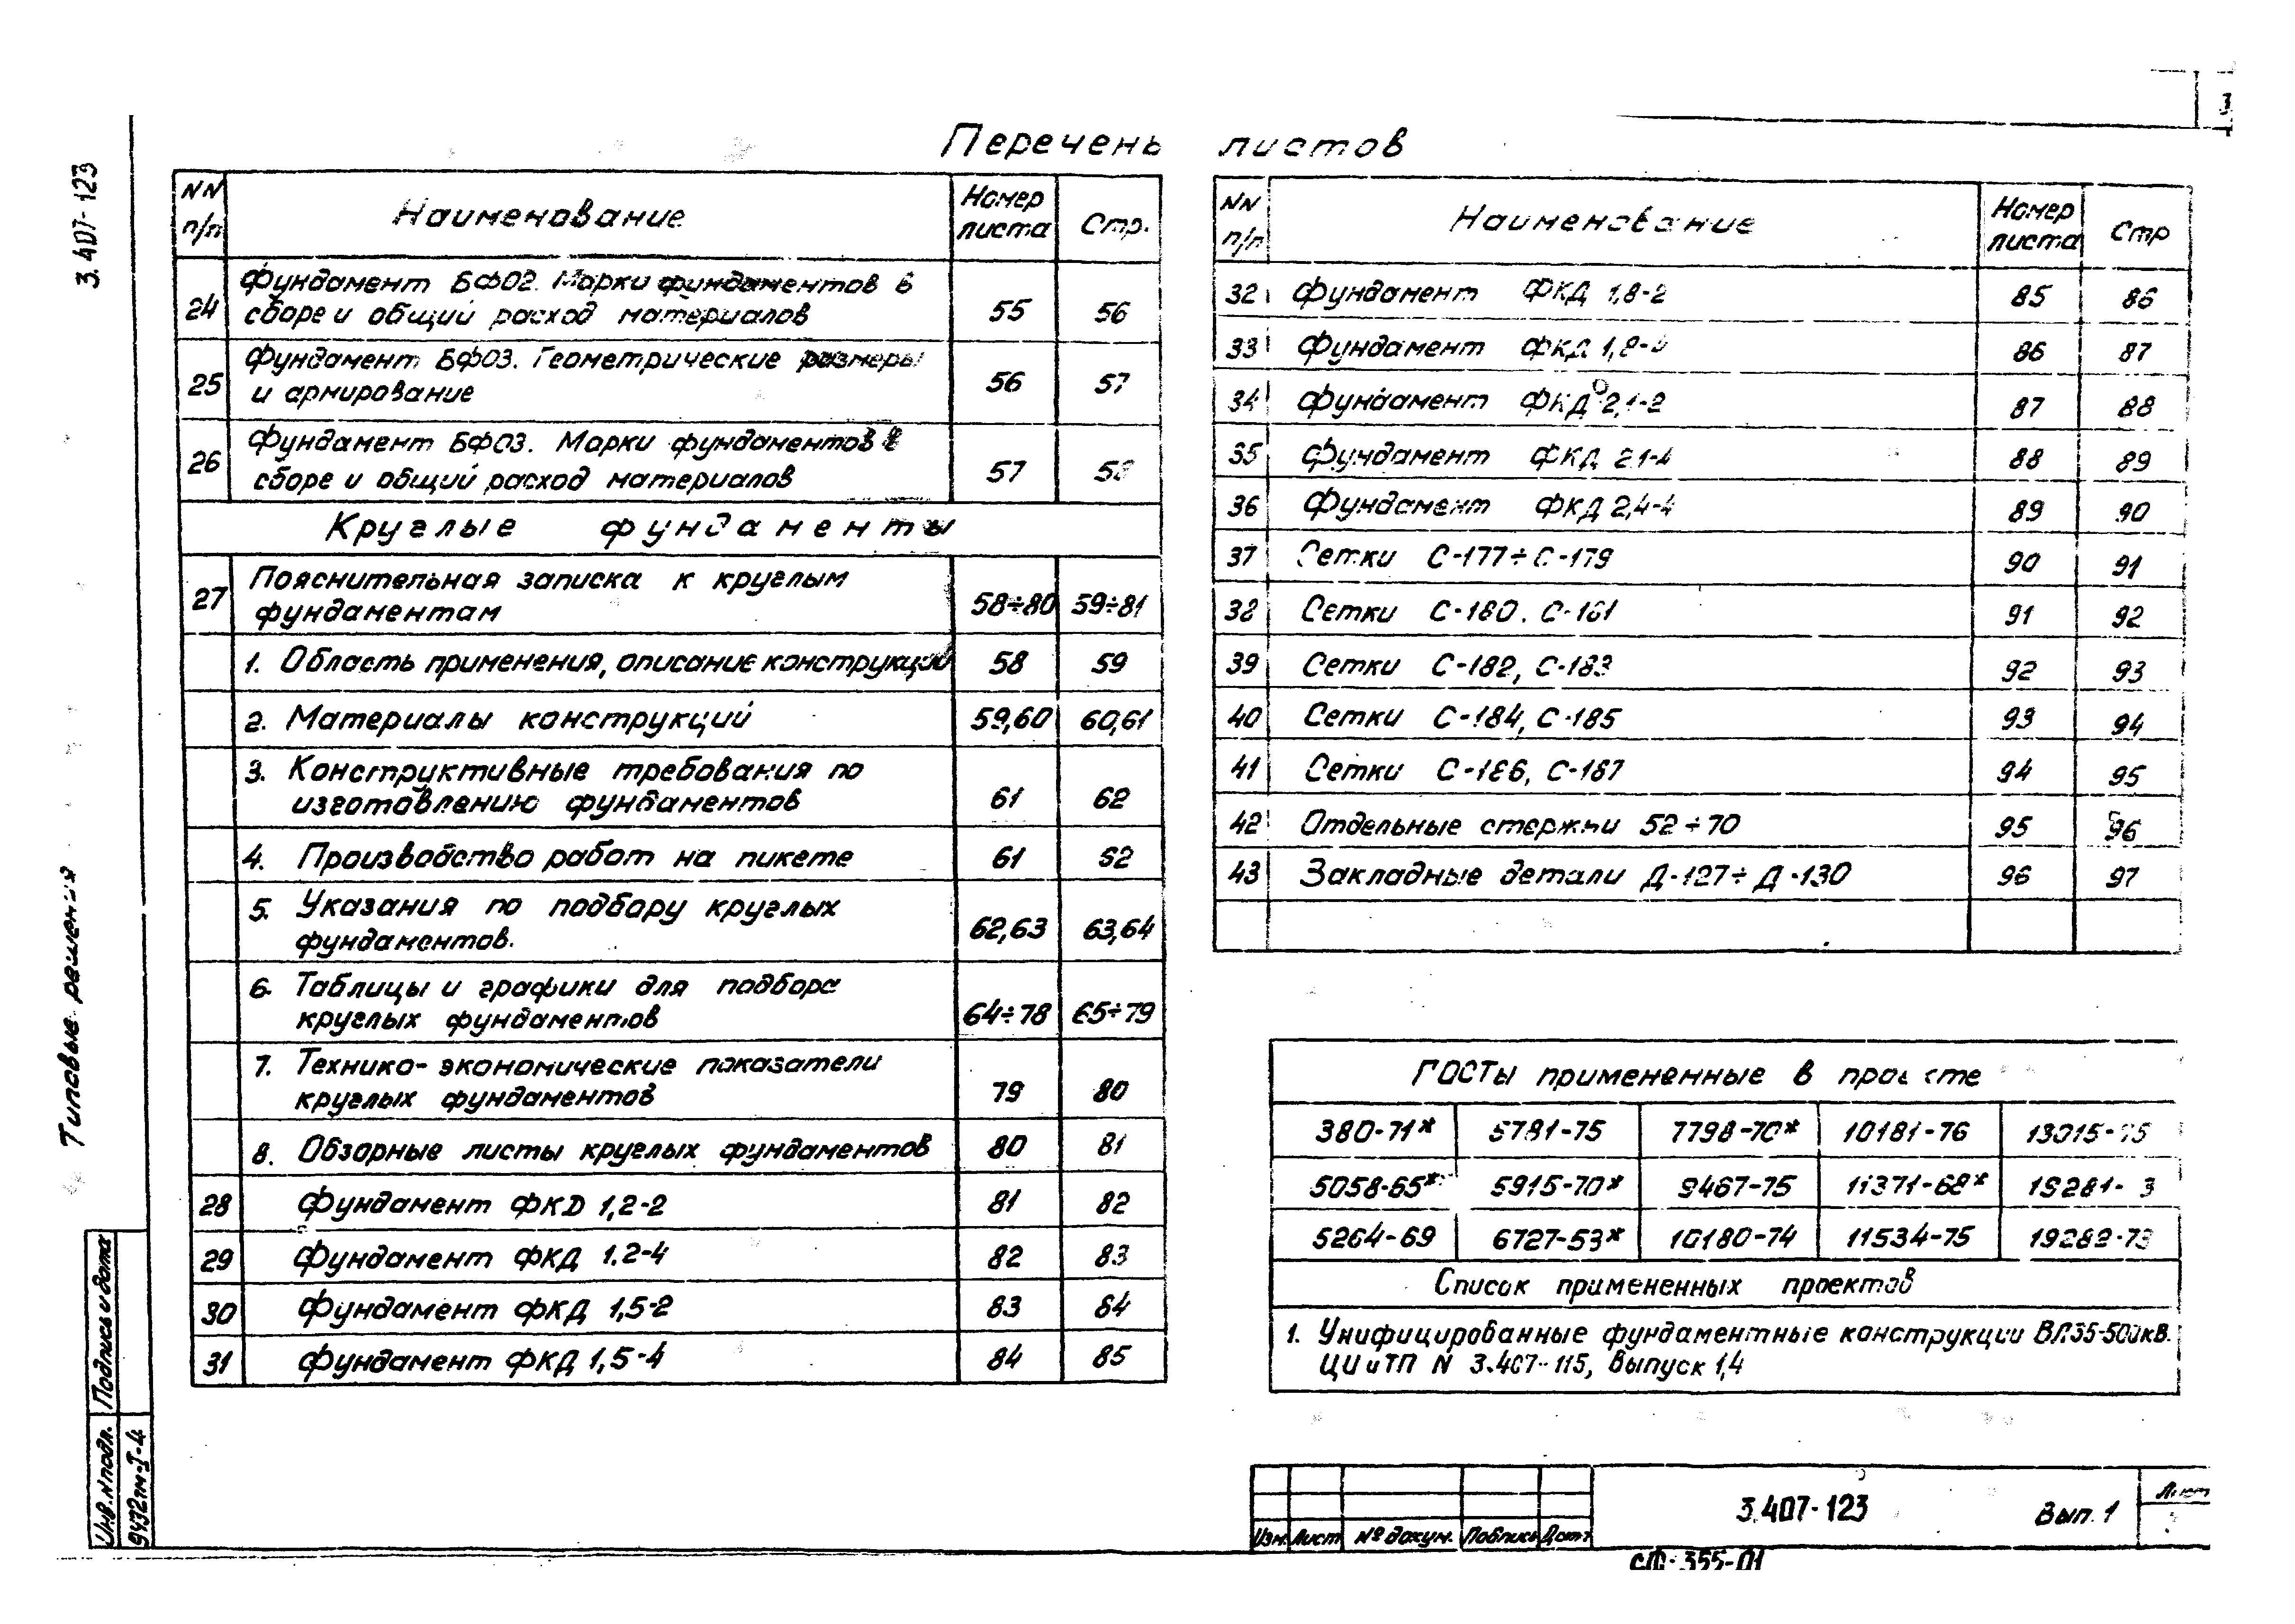 3
Перечень листов
3.407-123
Типовые решения
NN п/п Наименование Номер листа Стр.
24 Фундамент БФ02. Марки фундаментов в
сборе и общий расход материалов 55 56
25 Фундамент БФ03. Геометрические размеры
и армирование 56 57
26 Фундамент БФ03. Марки фундаментов в
сборе и общий расход материалов 57 58
Круглые фундаменты
27 Пояснительная записка к круглым
фундаментам 58÷80 59÷81
1. Область применения, описание конструкций 58 59
2. Материалы конструкций 59,60 60,61
3. Конструктивные требования по
изготовлению фундаментов 61 62
4. Производство работ на пикете 61 62
5. Указания по подбору круглых
фундаментов. 62,63 63,64
6. Таблицы и графики для подбора
круглых фундаментов 64÷78 65÷79
7. Технико-экономические показатели
круглых фундаментов 79 80
8. Обзорные листы круглых фундаментов 80 81
28 Фундамент ФКД 1,2-2 81 82
29 Фундамент ФКД 1.2-4 82 83
30 Фундамент ФКД 1,5-2 83 84
31 Фундамент ФКД 1,5-4 84 85
NN п/п Наименование Номер листа Стр
32 Фундамент ФКД 1,8-2 85 86
33 Фундамент ФКД 1,8-4 86 87
34 Фундамент ФКД 2,1-2 87 88
35 Фундамент ФКД 2,1-4 88 89
36 Фундамент ФКД 2,4-4 89 90
37 Сетки С-177÷С-179 90 91
38 Сетки С-180. С-181 91 92
39 Сетки С-182, С-183 92 93
40 Сетки С-184, С-185 93 94
41 Сетки С-186, С-187 94 95
42 Отдельные стержни 52÷70 95 96
43 Закладные детали Д-127÷Д-130 96 97
ГОСТы примененные в проекте
380-71* 5781-75 7798-70* 10181-76
5058-65* 5915-70* 9467-75 11371-68*
5264-69 6727-53* 10180-74 11534-75 19282-73
Список примененных проектов
1. Унифицированные фундаментные конструкции ВЛ35-500кВ.
ЦИиТП N 3.407-115, Выпуск 1,4
Инв.Nподл. Подпись и дата
9432тм-I-4
Изм. Лист №докум. Подпись Дата
3.407-123 Вып. 1 Лист
СФ-355-01